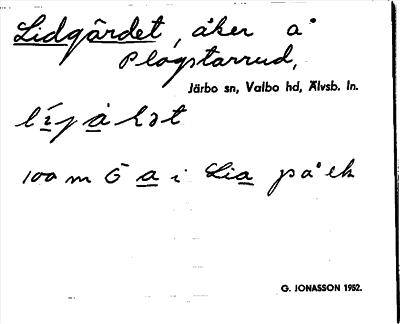 Lidgärdet, åker å
Plogstarrud,
Järbo sn, Valbo hd, Älvsb. ln.
100 m Ö a i Lia på ek
G. JONASSON 1952.